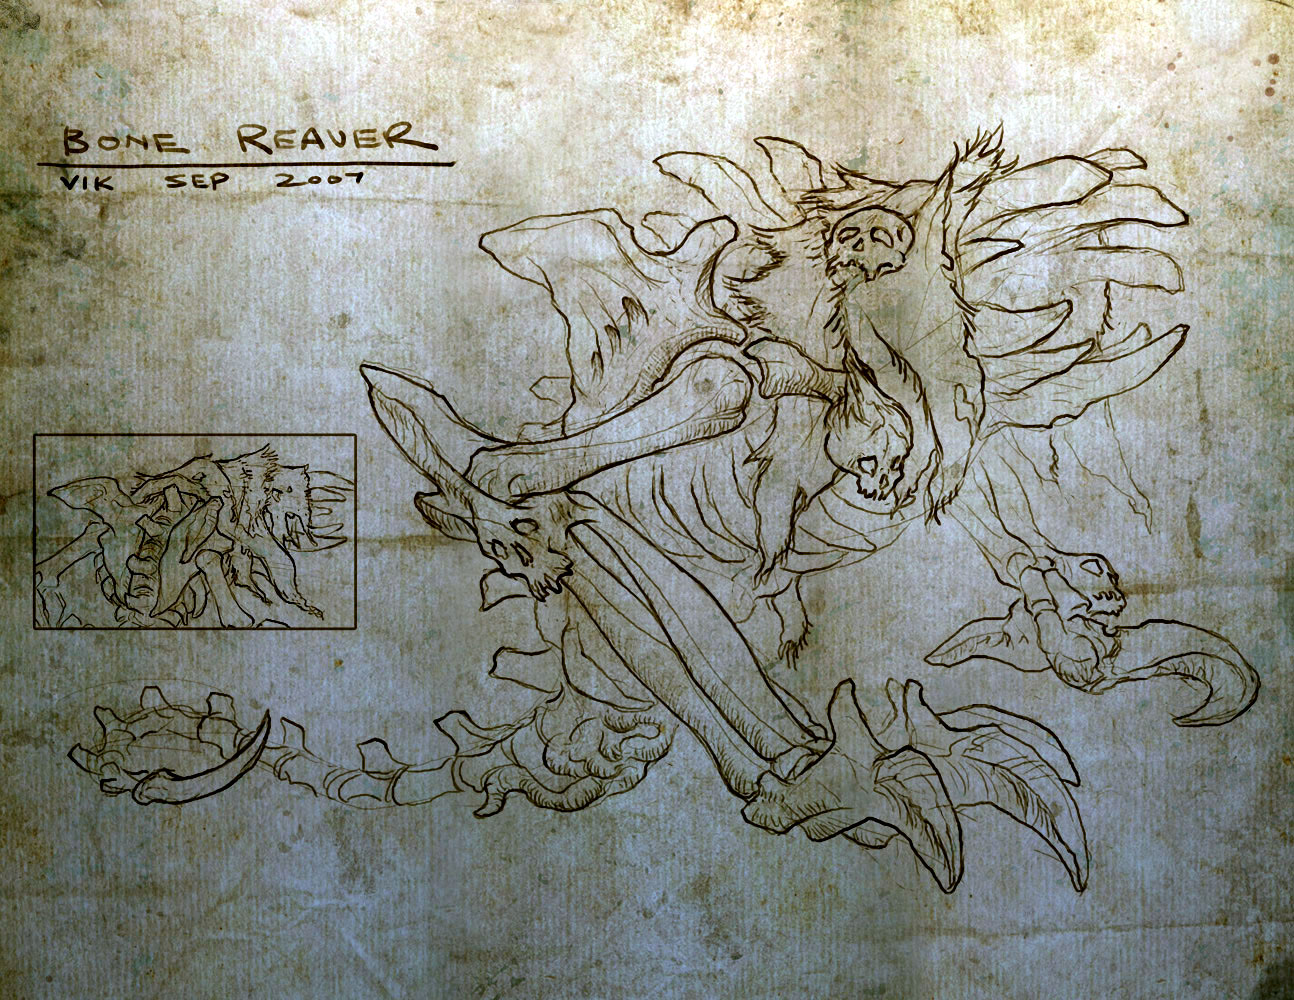 BONE REAVER
VIK SEP 2007